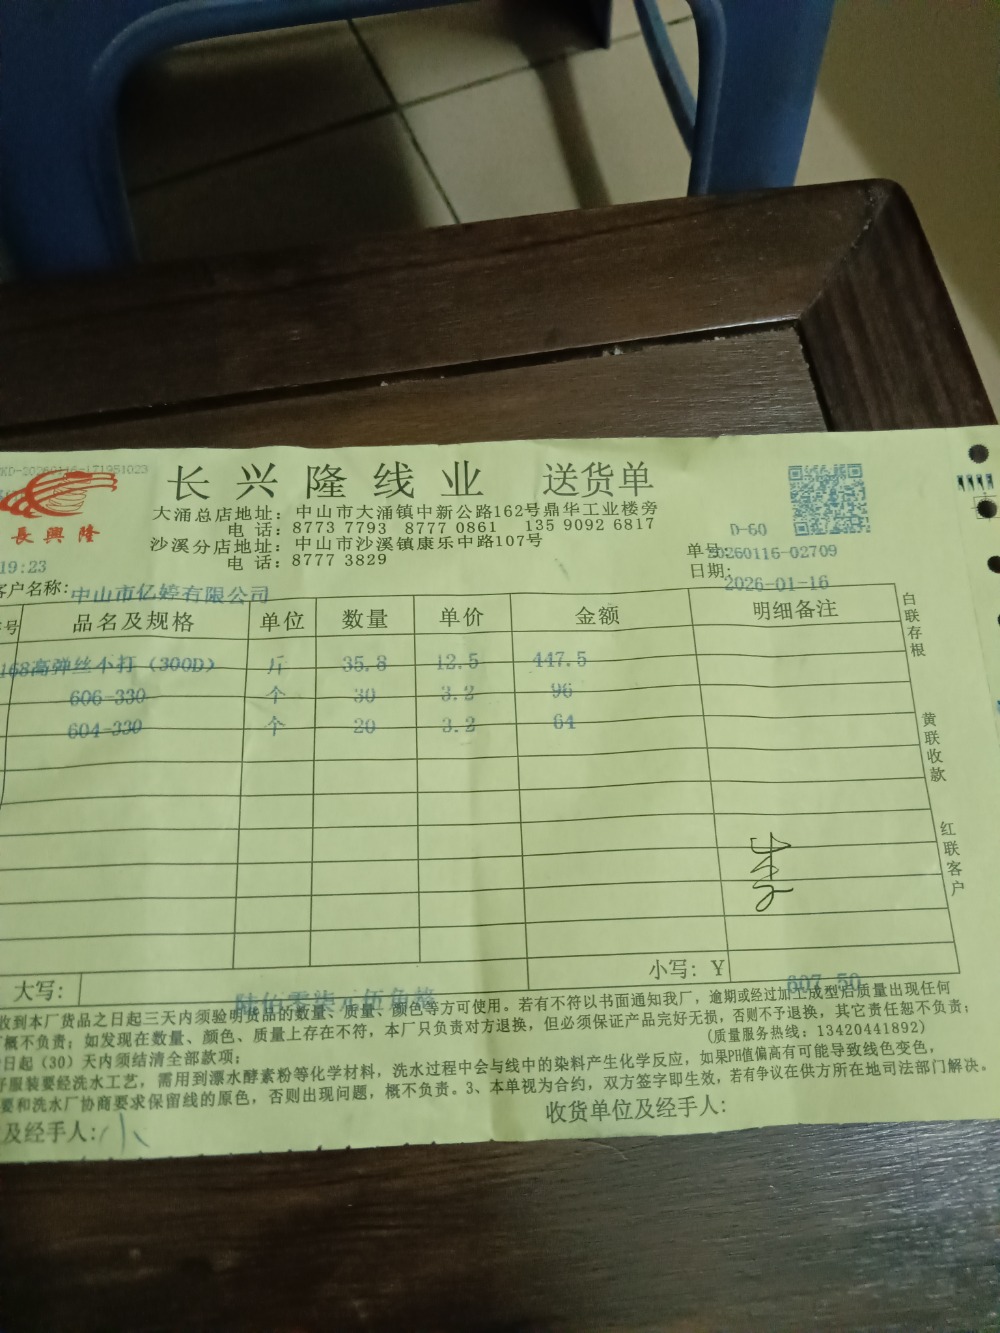 KD-20260116-171951023
长兴隆线业 送货单
長興隆
大涌总店地址：中山市大涌镇中新公路162号鼎华工业楼旁
电话：8773 7793 8777 0861 135 9092 6817
沙溪分店地址：中山市沙溪镇康乐中路107号
电话：8777 3829
D-60
单号：20260116-02709
日期：2026-01-16
19:23
客户名称：中山市亿婷有限公司
号 品名及规格 单位 数量 单价 金额 明细备注
168高弹丝小打（300D） 斤 35.8 12.5 447.5
606-330 个 30 3.2 96
604-330 个 20 3.2 64
白联存根
黄联收款
红联客户
大写：陆佰零柒元伍角整 小写：¥ 607.50
收到本厂货品之日起三天内须验明货品的数量、质量、颜色等方可使用。若有不符以书面通知我厂，逾期或经过加工成型后质量出现任何
概不负责；如发现在数量、颜色、质量上存在不符，本厂只负责对方退换，但必须保证产品完好无损，否则不予退换，其它责任恕不负责；
日起（30）天内须结清全部款项； (质量服务热线：13420441892)
服装要经洗水工艺，需用到漂水酵素粉等化学材料，洗水过程中会与线中的染料产生化学反应，如果PH值偏高有可能导致线色变色，
要和洗水厂协商要求保留线的原色，否则出现问题，概不负责。3、本单视为合约，双方签字即生效，若有争议在供方所在地司法部门解决。
及经手人： 收货单位及经手人：